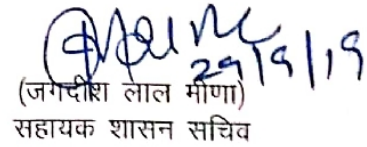 29/9/19
(जगदीश लाल मीणा)
सहायक शासन सचिव